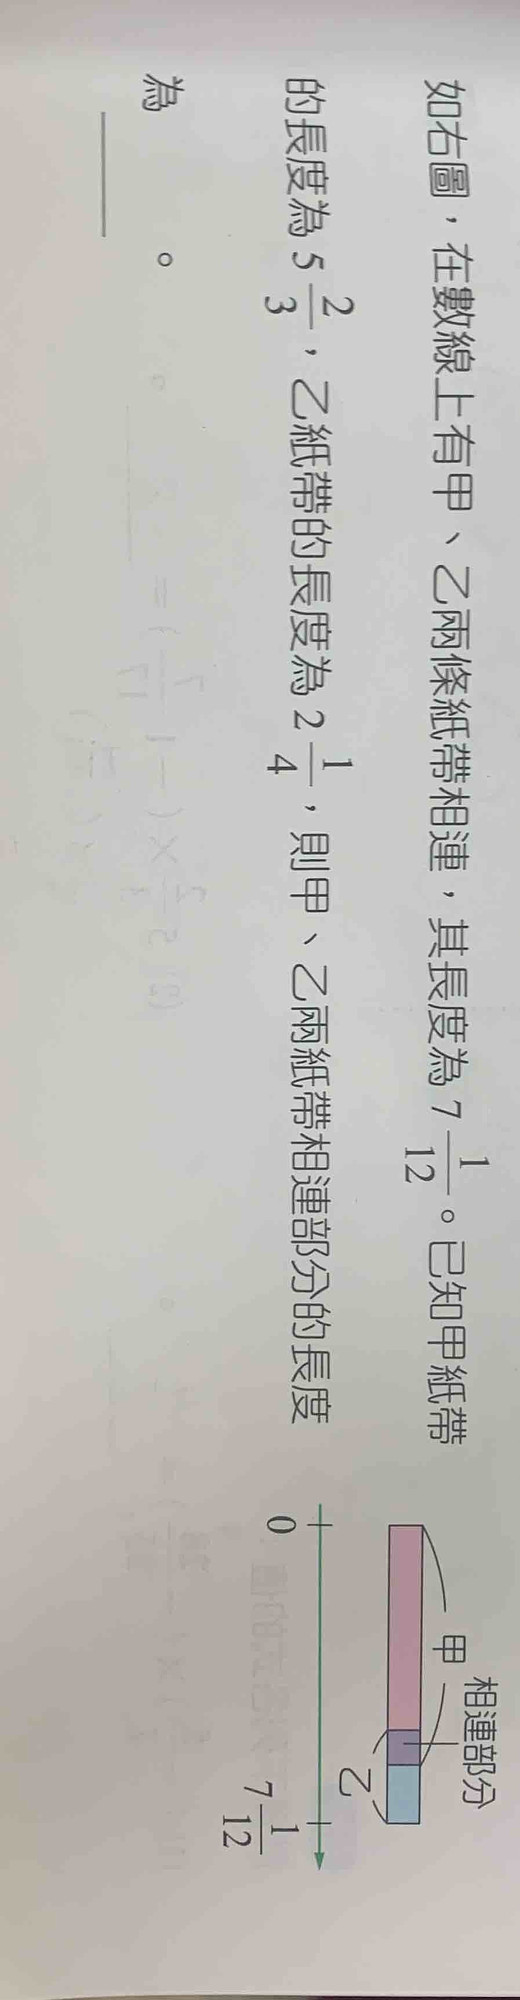 如右圖，在數線上有甲、乙兩條紙帶相連，其長度為 7 1/12。已知甲紙帶
的長度為 5 2/3，乙紙帶的長度為 2 1/4，則甲、乙兩紙帶相連部分的長度
為＿＿＿。
相連部分
甲
乙
0
7 1/12